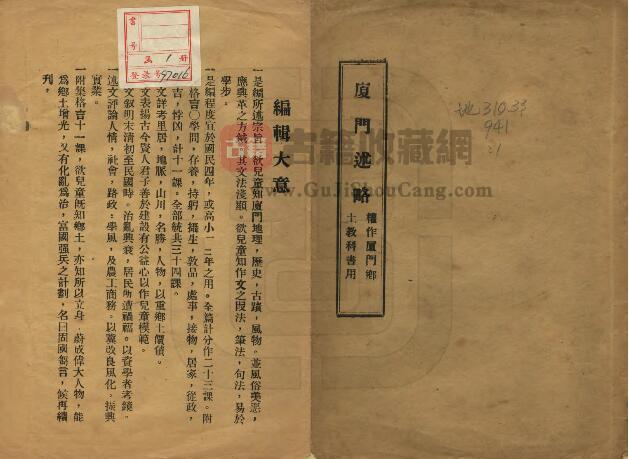 廈門述略
權作廈門鄉
土教科書用
地31033
941
:1
編輯大意
一是編所述宗旨，欲兒童知廈門地理，歷史，古蹟，風物。並風俗美惡，
應興革之方。其文法淺顯。欲兒童知作文之段法，筆法，句法，易於
學步。
一是編程度宜於國民四年，或高小一二年之用。全篇計分作二十三課。附
格言〇學問，存養，持躬，攝生，敦品，處事，接物，居家，從政，
吉，悖凶，計十一課。全部統共三十四課。
文詳考里居，地脈，山川，名勝，人物，以重鄉土價值。
文表揚古今賢人君子善於建設有公益心以作兒童模範。
文叙明末清初至民國時。治亂興衰，居民所遭禍福。以資學者考鏡。
一述文評論人情，社會，路政，學風，及農工商務。以冀改良風化。振興
實業。
一附集格言十一課，欲兒童旣知鄉土，亦知所以立身，蔚成偉大人物，能
為鄉土增光，又有化亂為治，富國强兵之計劃，名曰固國芻言，候再續
刋。
書
號
函
1
册
登录号97016
古籍收藏網
www.GuJiShouCang.com